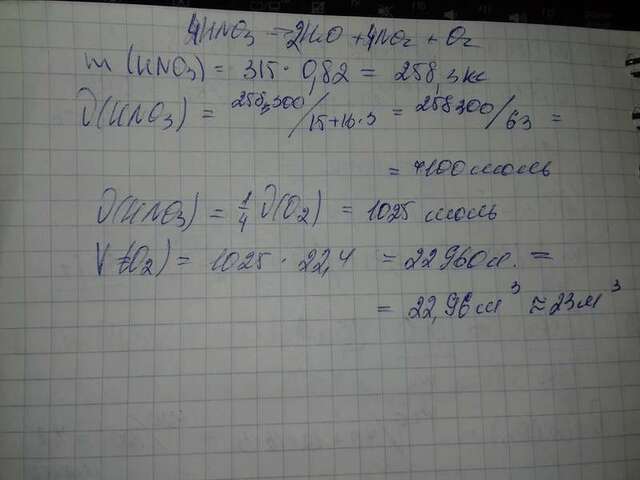 4HNO3 = 2H2O + 4NO2 + O2
m (HNO3) = 315 · 0,82 = 258,3 кг
ν(HNO3) = 258,300/15+16·3 = 258300/63 =
= 4100 моль
ν(HNO3) = 1/4 ν(O2) = 1025 моль
V (O2) = 1025 · 22,4 = 22960 л. =
= 22,96 м³ ≈ 23 м³